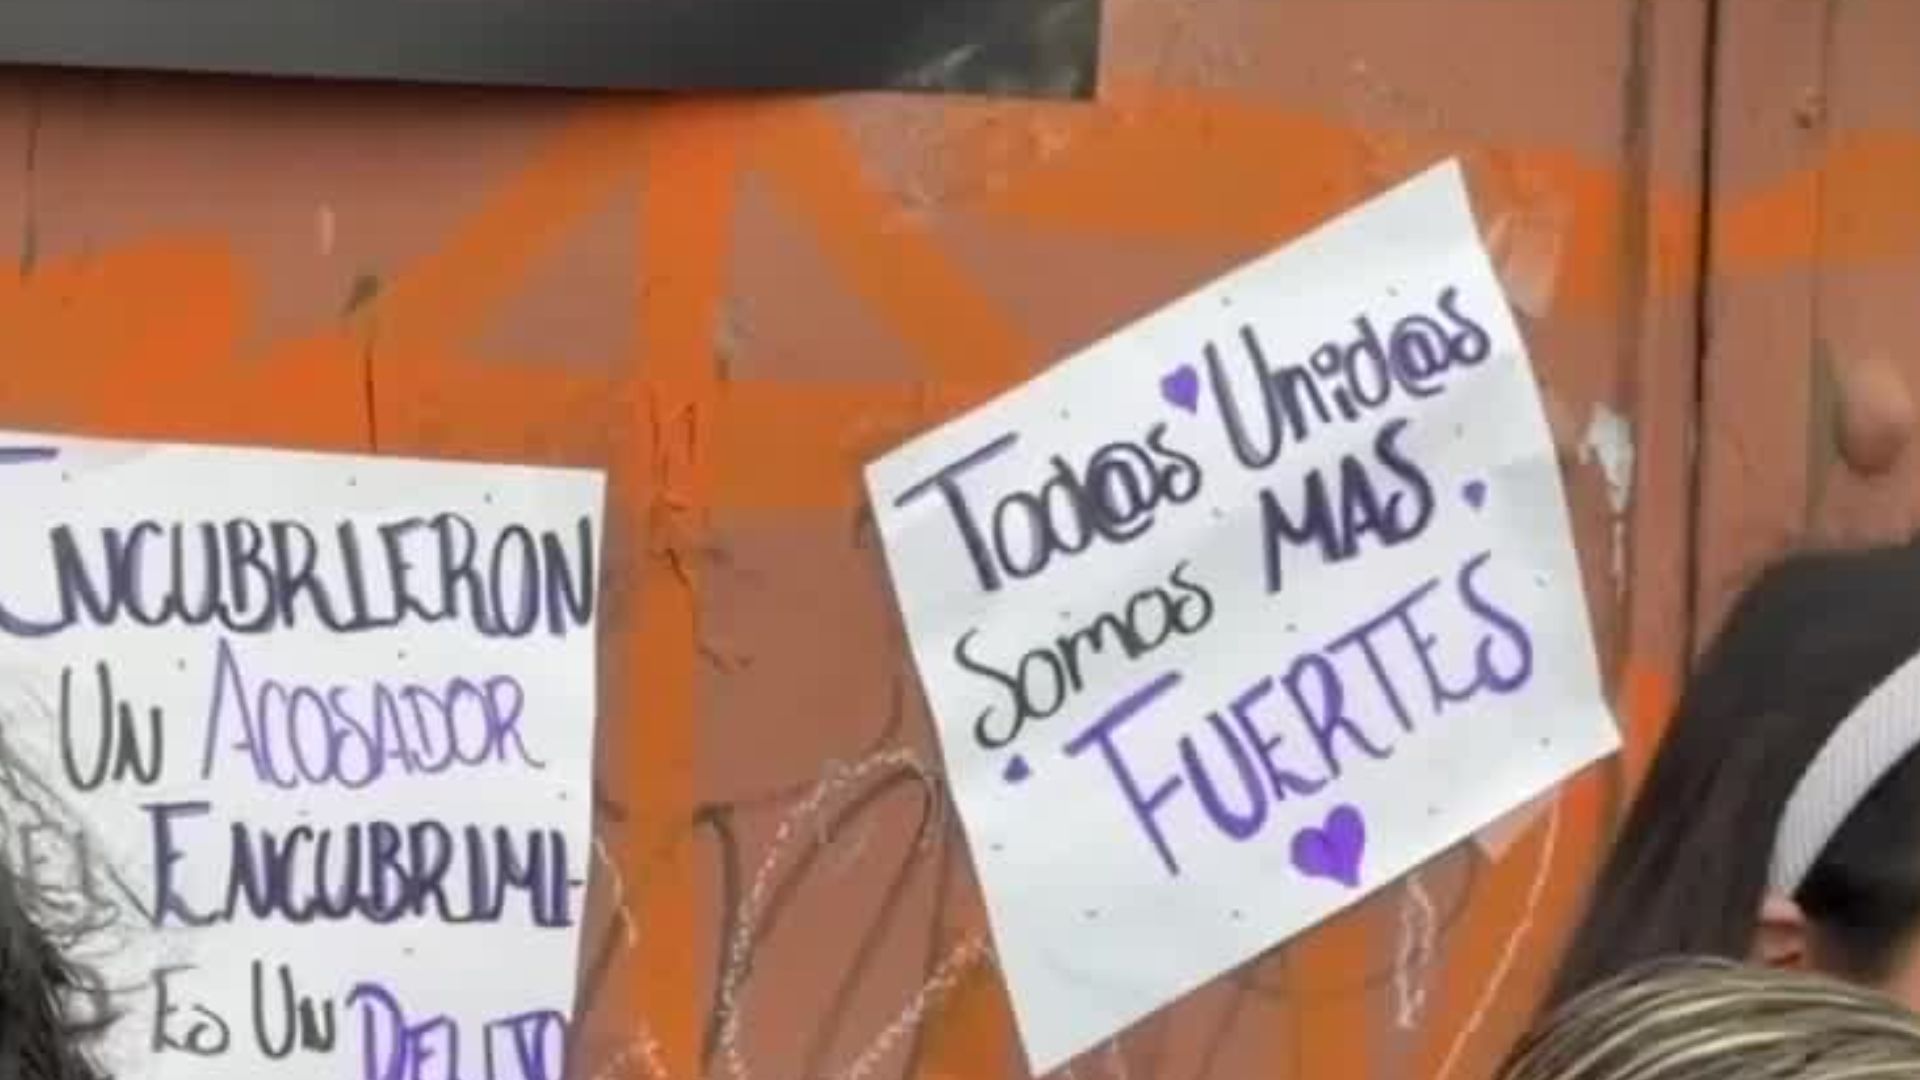 ENCUBRIERON
UN ACOSADOR
ENCUBRIMI-
Es UN DELITO
Tod@s Unid@s
Somos MAS
FUERTES